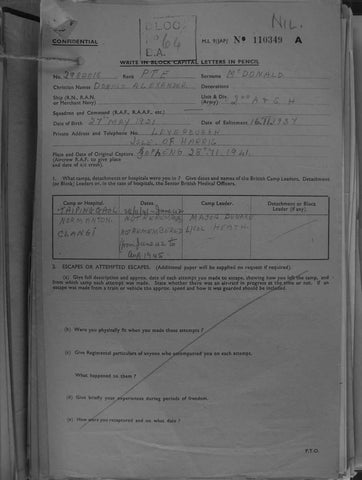 NIL.
BLOCK
64
B.A.
CONFIDENTIAL
M.I. 9/JAP/ No 110349 A
WRITE IN BLOCK CAPITAL LETTERS IN PENCIL
No. Rank PTE Surname McDONALD
Christian Names DONALD ALEXANDER Decorations
Ship (R.N., R.A.N. or Merchant Navy) Unit & Div. (Army) 2ND A & S H
Squadron and Command (R.A.F., R.A.A.F., etc.)
Date of Birth 27 MAY 1921 Date of Enlistment 1937
Private Address and Telephone No. LEVERBURGH
ISLE OF HARRIS
Place and Date of Original Capture
(Aircrew R.A.F. to give place and date of a/c crash). 1941
1. What camps, detachments or hospitals were you in? Give dates and names of the British Camp Leaders, Detachment (or Block) Leaders or, in the case of hospitals, the Senior British Medical Officers.
Camp or Hospital Dates. Camp Leader. Detachment or Block Leader (if any).
TAIPING GAOL
NORMANTON NOT REMEMBERED MAJOR
CHANGI NOT REMEMBERED LCOL HEATH
to
1945
2. ESCAPES OR ATTEMPTED ESCAPES. (Additional paper will be supplied on request if required).
(a) Give full description and approx. date of each attempt you made to escape, showing how you left the camp, and from which camp each attempt was made. State whether there was an air-raid in progress at the time or not. If an escape was made from a train or vehicle the approx. speed and how it was guarded should be included.
(b) Were you physically fit when you made those attempts?
(c) Give Regimental particulars of anyone who accompanied you on each attempt.
What happened to them?
(d) Give briefly your experiences during periods of freedom.
(e) How were you recaptured and on what date?
P.T.O.